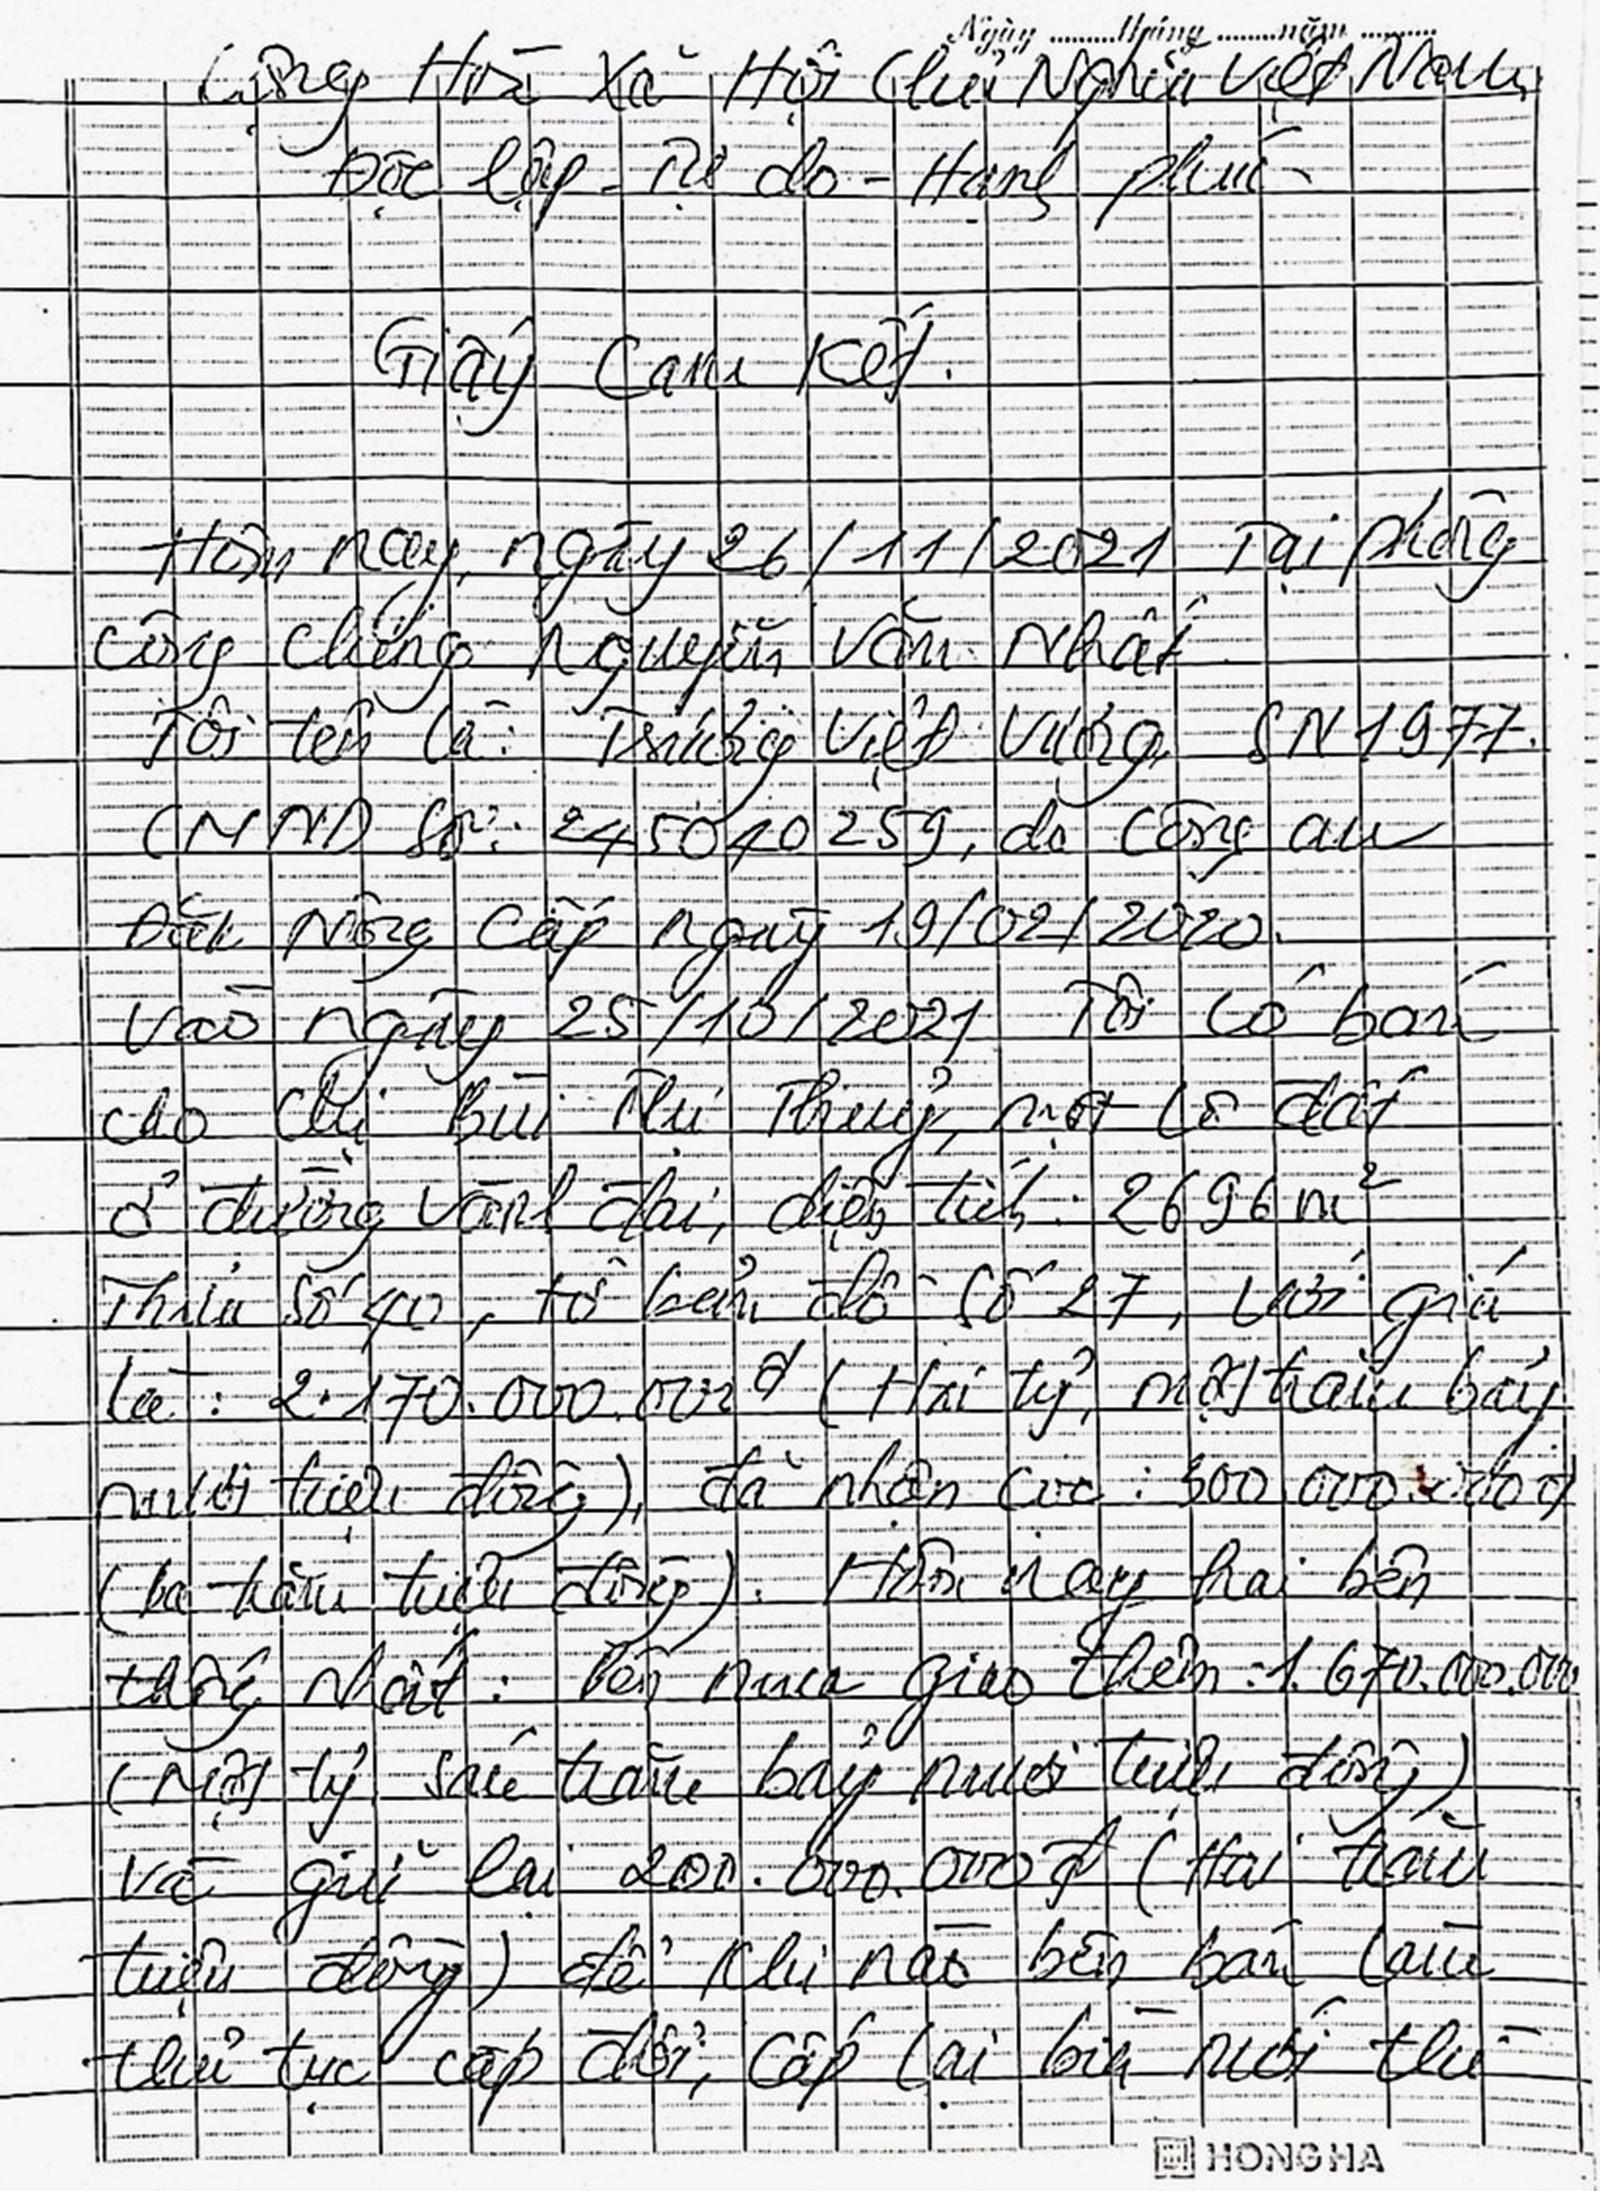 Ngày ........ tháng ........ năm ........
Cộng Hoà Xã Hội Chủ Nghĩa Việt Nam
Độc lập - Tự do - Hạnh phúc
Giấy Cam Kết.
Hôm nay, ngày 26/11/2021 Tại phòng
công chứng Nguyễn Văn Nhất
Tôi tên là: Trương Việt Vương SN 1977.
CMND Số: 245040259, do Công an
Đăk Nông Cấp ngày 19/02/2020.
Vào ngày 25/10/2021 Tôi có bán
cho Chị Bùi Thị Thuỷ, một lô đất
ở đường vành đai, diện tích: 2696 m²
Thửa số 40, tờ bản đồ số 27, với giá
là: 2.170.000.000đ (Hai tỷ, một trăm bảy
mươi triệu đồng), đã nhận cọc: 300.000.000đ
(ba trăm triệu đồng). Hôm nay hai bên
thống nhất: bên mua giao thêm: 1.670.000.000
(Một tỷ sáu trăm bảy mươi triệu đồng)
và giữ lại 200.000.000đ (Hai trăm
triệu đồng) để khi nào bên bán làm
thủ tục cấp đổi, cấp lại bìa mới thì
HONG HA